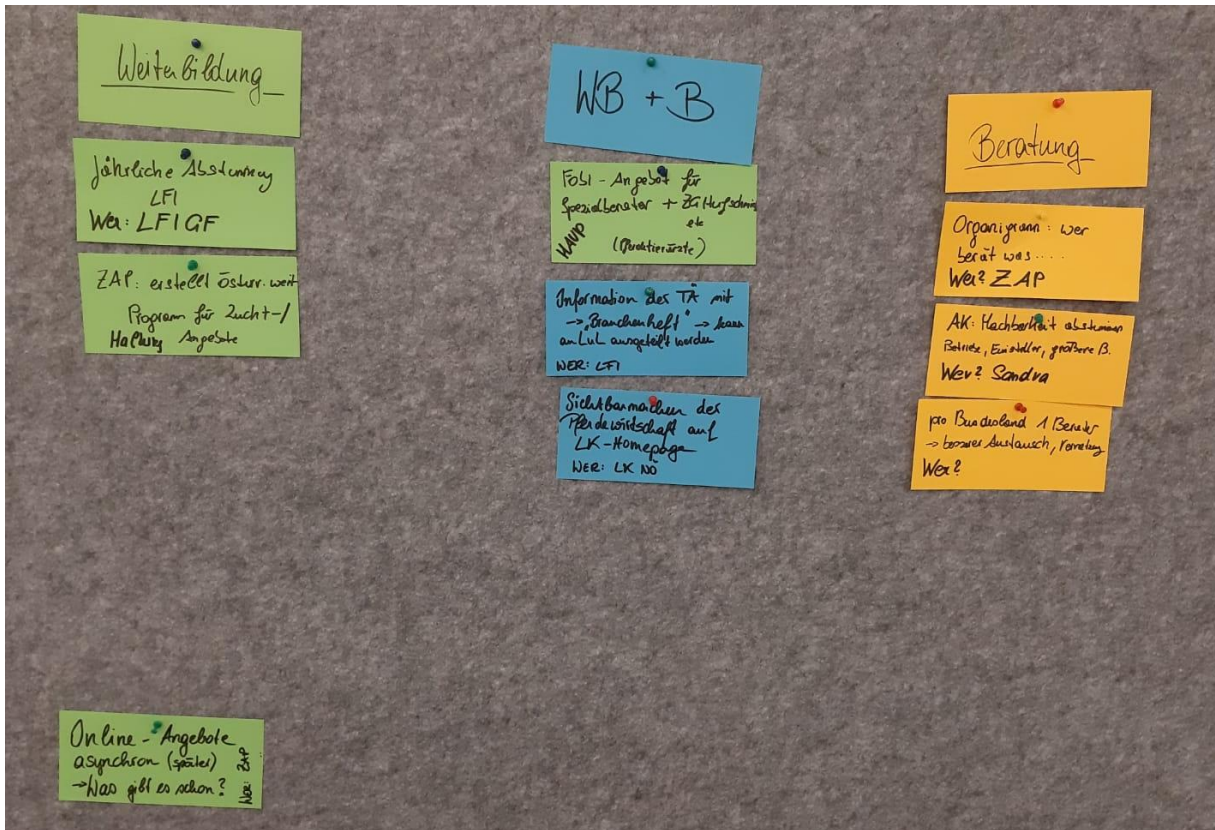 Weiterbildung
Jährliche Abstimmung
LFI
Wer: LFI GF
ZAP: erstellt österr. weit
Program für Zucht-/
Haltung Angebote
Online-Angebote
asynchron (später)
→ Was gibt es schon?
Wer: ZAP
WB + B
FoBi-Angebot für
Spezialberater +
etc
HAUP
Information des TÄ mit
→ "Branchenheft" → kann
an LuL ausgeteilt werden
WER: LFI
Sichtbarmachen der
Pferdewirtschaft auf
LK-Homepage
WER: LK NÖ
Beratung
Organigram: wer
berät was....
Wer? ZAP
AK: Machbarkeit abstimmen
Betriebe, Einsteller, größere B.
Wer? Sandra
pro Bundesland 1 Berater
→ besserer Austausch,
Wer?